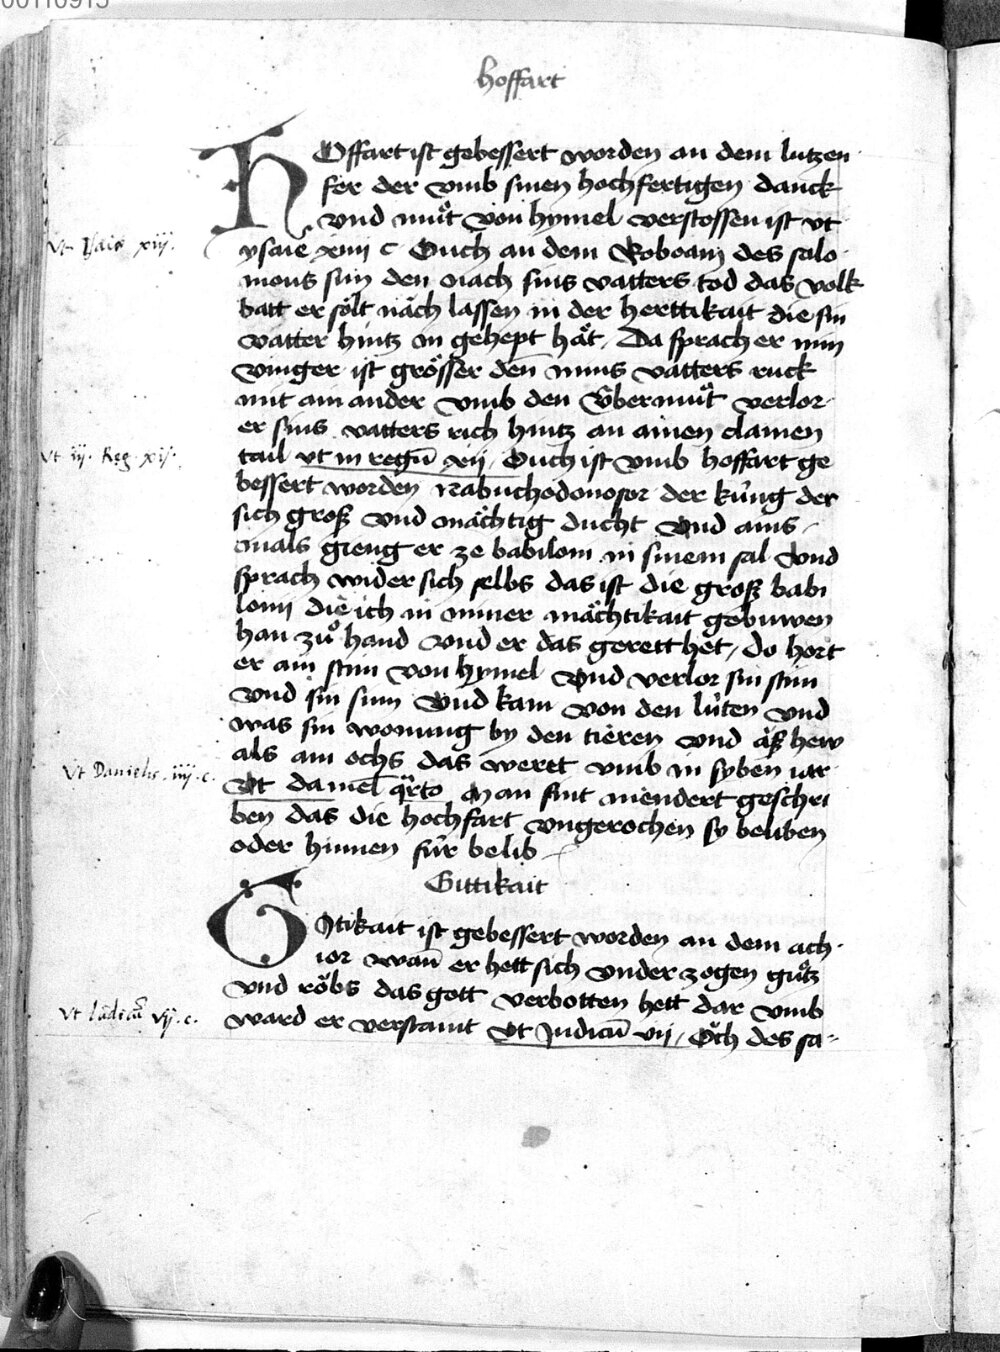 00110915
hoffart
HOffart ist gebessert worden an dem lutzen
fer der vmb sinen hochfertigen danck
vnd muͦt von hymel verstossen ist vt
Vt Isaie xiij.
ysaie xiiij c Ouch an dem Roboam des salo
mons sun den nach sins vatters tod das volk
batt er soͤlt nâch lassen in der herttikait die sin
vatter hintz in gehept haͤt. Da sprach er min
vinger ist groͤsser denn mins vatters ruck
mit am ander vmb den Úbermuͦt verlor
er sins vatters rich hintz an ainen clainen
Vt iij. Reg. xij.
tail vt in regū xij, Ouch ist vmb hoffart ge
bessert worden Nabuchodonosor der kúng der
sich groß vnd maͤchtig ducht Vnd ains
mals gieng er ze babiloni in sinem sal Vnd
sprach wider sich selbs das ist die groß babi
lony die ich in miner maͤchtikait gebuwen
han zuͦ hand vnd er das gerett het, do hort
er ain stim von hymel Vnd verlor sin stim
vnd sin sinn Vnd kam von den lúten vnd
was sin wonung by den tieren vnd aͤß hew
Vt Danielis. iiij. c.
als ain ochs das weret vmb in syben iar
Vt daniel qrto Man fint niendert geschri
ben das die hochfart vngerochen sy beliben
oder hinnen fúr belib
Gittikait
GItikait ist gebessert worden an dem ach
ior wann er hett sich vnder zogen guͦtz
vnd roͤbs das gott verbotten hett dar vmb
Vt Iudicū vij. c.
ward er verstaint Vt Judicū vij, Och des sa=